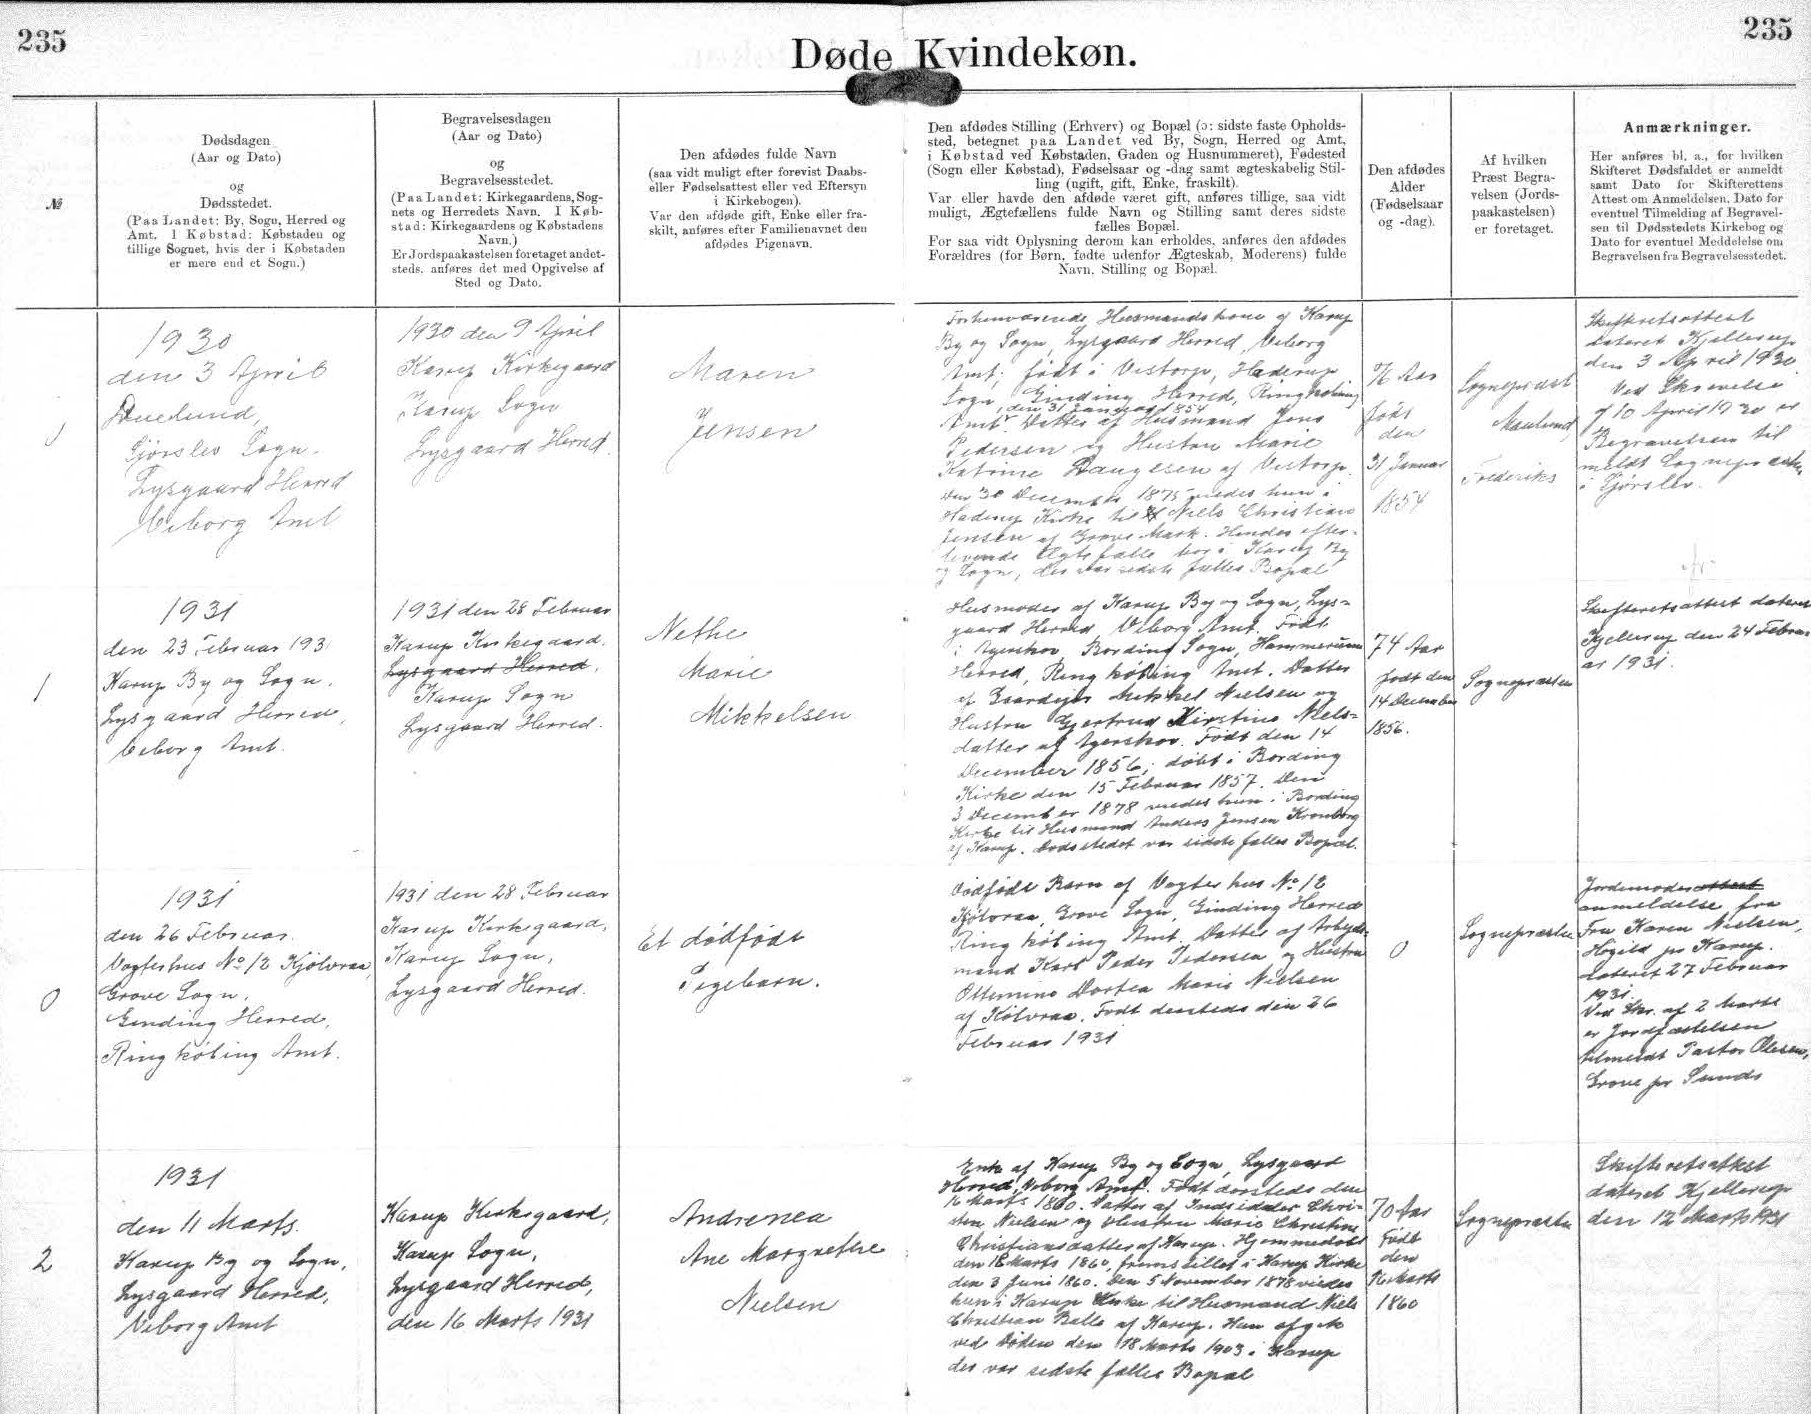 235
235
Døde Kvindekøn.
№
Dødsdagen
(Aar og Dato)
og
Dødsstedet.
(Paa Landet: By, Sogn, Herred og
Amt. I Købstad: Købstaden og
tillige Sognet, hvis der i Købstaden
er mere end et Sogn.)
Begravelsesdagen
(Aar og Dato)
og
Begravelsesstedet.
(Paa Landet: Kirkegaardens, Sog-
nets og Herredets Navn. I Køb-
stad: Kirkegaardens og Købstadens
Navn.)
Er Jordspaakastelsen foretaget andet-
steds, anføres det med Opgivelse af
Sted og Dato.
Den afdødes fulde Navn
(saa vidt muligt efter forevist Daabs-
eller Fødselsattest eller ved Eftersyn
i Kirkebogen).
Var den afdøde gift, Enke eller fra-
skilt, anføres efter Familienavnet den
afdødes Pigenavn.
Den afdødes Stilling (Erhverv) og Bopæl (ɔ: sidste faste Opholds-
sted, betegnet paa Landet ved By, Sogn, Herred og Amt,
i Købstad ved Købstaden, Gaden og Husnummeret), Fødested
(Sogn eller Købstad), Fødselsaar og -dag samt ægteskabelig Stil-
ling (ugift, gift, Enke, fraskilt).
Var eller havde den afdøde været gift, anføres tillige, saa vidt
muligt, Ægtefællens fulde Navn og Stilling samt deres sidste
fælles Bopæl.
For saa vidt Oplysning derom kan erholdes, anføres den afdødes
Forældres (for Børn, fødte udenfor Ægteskab, Moderens) fulde
Navn, Stilling og Bopæl.
Den afdødes
Alder
(Fødselsaar
og -dag).
Af hvilken
Præst Begra-
velsen (Jords-
paakastelsen)
er foretaget.
Anmærkninger.
Her anføres bl. a., for hvilken
Skifteret Dødsfaldet er anmeldt
samt Dato for Skifterettens
Attest om Anmeldelsen, Dato for
eventuel Tilmelding af Begravel-
sen til Dødsstedets Kirkebog og
Dato for eventuel Meddelelse om
Begravelsen fra Begravelsesstedet.
1930
den 3 April
Duelund,
Gjørslev Sogn.
Lysgaard Herred
Viborg Amt
1930 den 9 April
Karup Kirkegaard
Karup Sogn
Lysgaard Herred.
Maren
Jensen
Forhenværende Husmandskone af Karup
By og Sogn, Lysgaard Herred, Viborg
Amt; født i Vistorp, Haderup
Sogn, Ginding Herred, Ringkøbing
, den 31 Januar 1854
Amt. Datter af Husmand Jens
Pedersen og Hustru Marie
Katrine Daugesen af Vistorp.
Den 30 December 1875 viedes hun i
Haderup Kirke til Niels Christian
Jensen af Grove Mark. Hendes efter-
levende Ægtefælle bor i Karup By
og Sogn, der var sidste fælles Bopæl
76 Aar
født
den
31 Januar
1854
Sognepræst
Frederiks
Skifteretsattest
dateret Kjellerup
den 3 April 1930
Ved Skrivelse
af 10 April 1930 er
Begravelsen til
meldt Sognepræsten
i Gjørslev.
1
1931
den 23 Februar 193
Karup By og Sogn.
Lysgaard Herred,
Viborg Amt.
1931 den 28 Februar
Karup Kirkegaard.
Lysgaard Herred.
Karup Sogn
Lysgaard Herred.
Nethe
Marie
Mikkelsen
Husmoder af Karup By og Sogn, Lys-
gaard Herred Viborg Amt. Født
i Agerskov, Bording Sogn, Hammerum
Herred, Ringkøbing Amt. Datter
af Gaardejer Mikkel Nielsen og
Hustru Gjertrud Kirstine Niels-
datter af Agerskov. Født den 14
December 1856, døbt i Bording
Kirke den 15 Februar 1857. Den
3 December 1878 viedes hun i Bording
Kirke til Husmand Anders Jensen Kronborg
af Karup. Dødsstedet var sidste fælles Bopæl.
74 Aar
født den
14 December
1856.
Sognepræsten
Skifteretsattest dateret
Kjellerup den 24 Februar
1931.
0
1931
den 26 Februar.
Vogterhus No 12 Kjølvraa,
Grove Sogn.
Ginding Herred,
Ringkøbing Amt.
1931 den 28 Februar
Karup Kirkegaard,
Karup Sogn,
Lysgaard Herred.
Et dødfødt
Pigebarn.
Dødfødt Barn af Vogterhus No 12
Kjølvraa, Grove Sogn, Ginding Herred
Ringkøbing Amt. Datter af Arbejds-
mand Karl Peder Pedersen og Hustru
Ottemine Dortea Marie Nielsen
af Kølvraa. Født dersteds den 26
Februar 1931
0
Sognepræsten
Jordemoderattest
anmeldelse fra
Fru Karen Nielsen,
Høgild pr Karup.
dateret 27 Februar
1931.
Ved Skr. af 2 Marts
er Jordfæstelsen
tilmeldt Pastor Olesen,
Grove pr Sunds
2
1931
den 11 Marts.
Karup By og Sogn,
Lysgaard Herred,
Viborg Amt
Karup Kirkegaard,
Karup Sogn,
Lysgaard Herred,
den 16 Marts 1931
Andrenea
Ane Margrethe
Nielsen
Enke af Karup By og Sogn, Lysgaard
Herred, Viborg Amt. Født dersteds den
16 Marts 1860. Datter af Indsidder Chri-
sten Nielsen og Hustru Marie Christine
Christiansdatter af Karup. Hjemmedøbt
den 18 Marts 1860, fremstillet i Karup Kirke
den 3 Juni 1860. Den 5 November 1878 viedes
hun i Karup Kirke til Husmand Niels
Christian Balle af Karup. Han afgik
ved Døden den 18 Marts 1903 i Karup
der var sidste fælles Bopæl
70 Aar
Født
den
16 Marts
1860
Sognepræsten
Skifteretsattest
dateret Kjellerup
den 12 Marts 1931